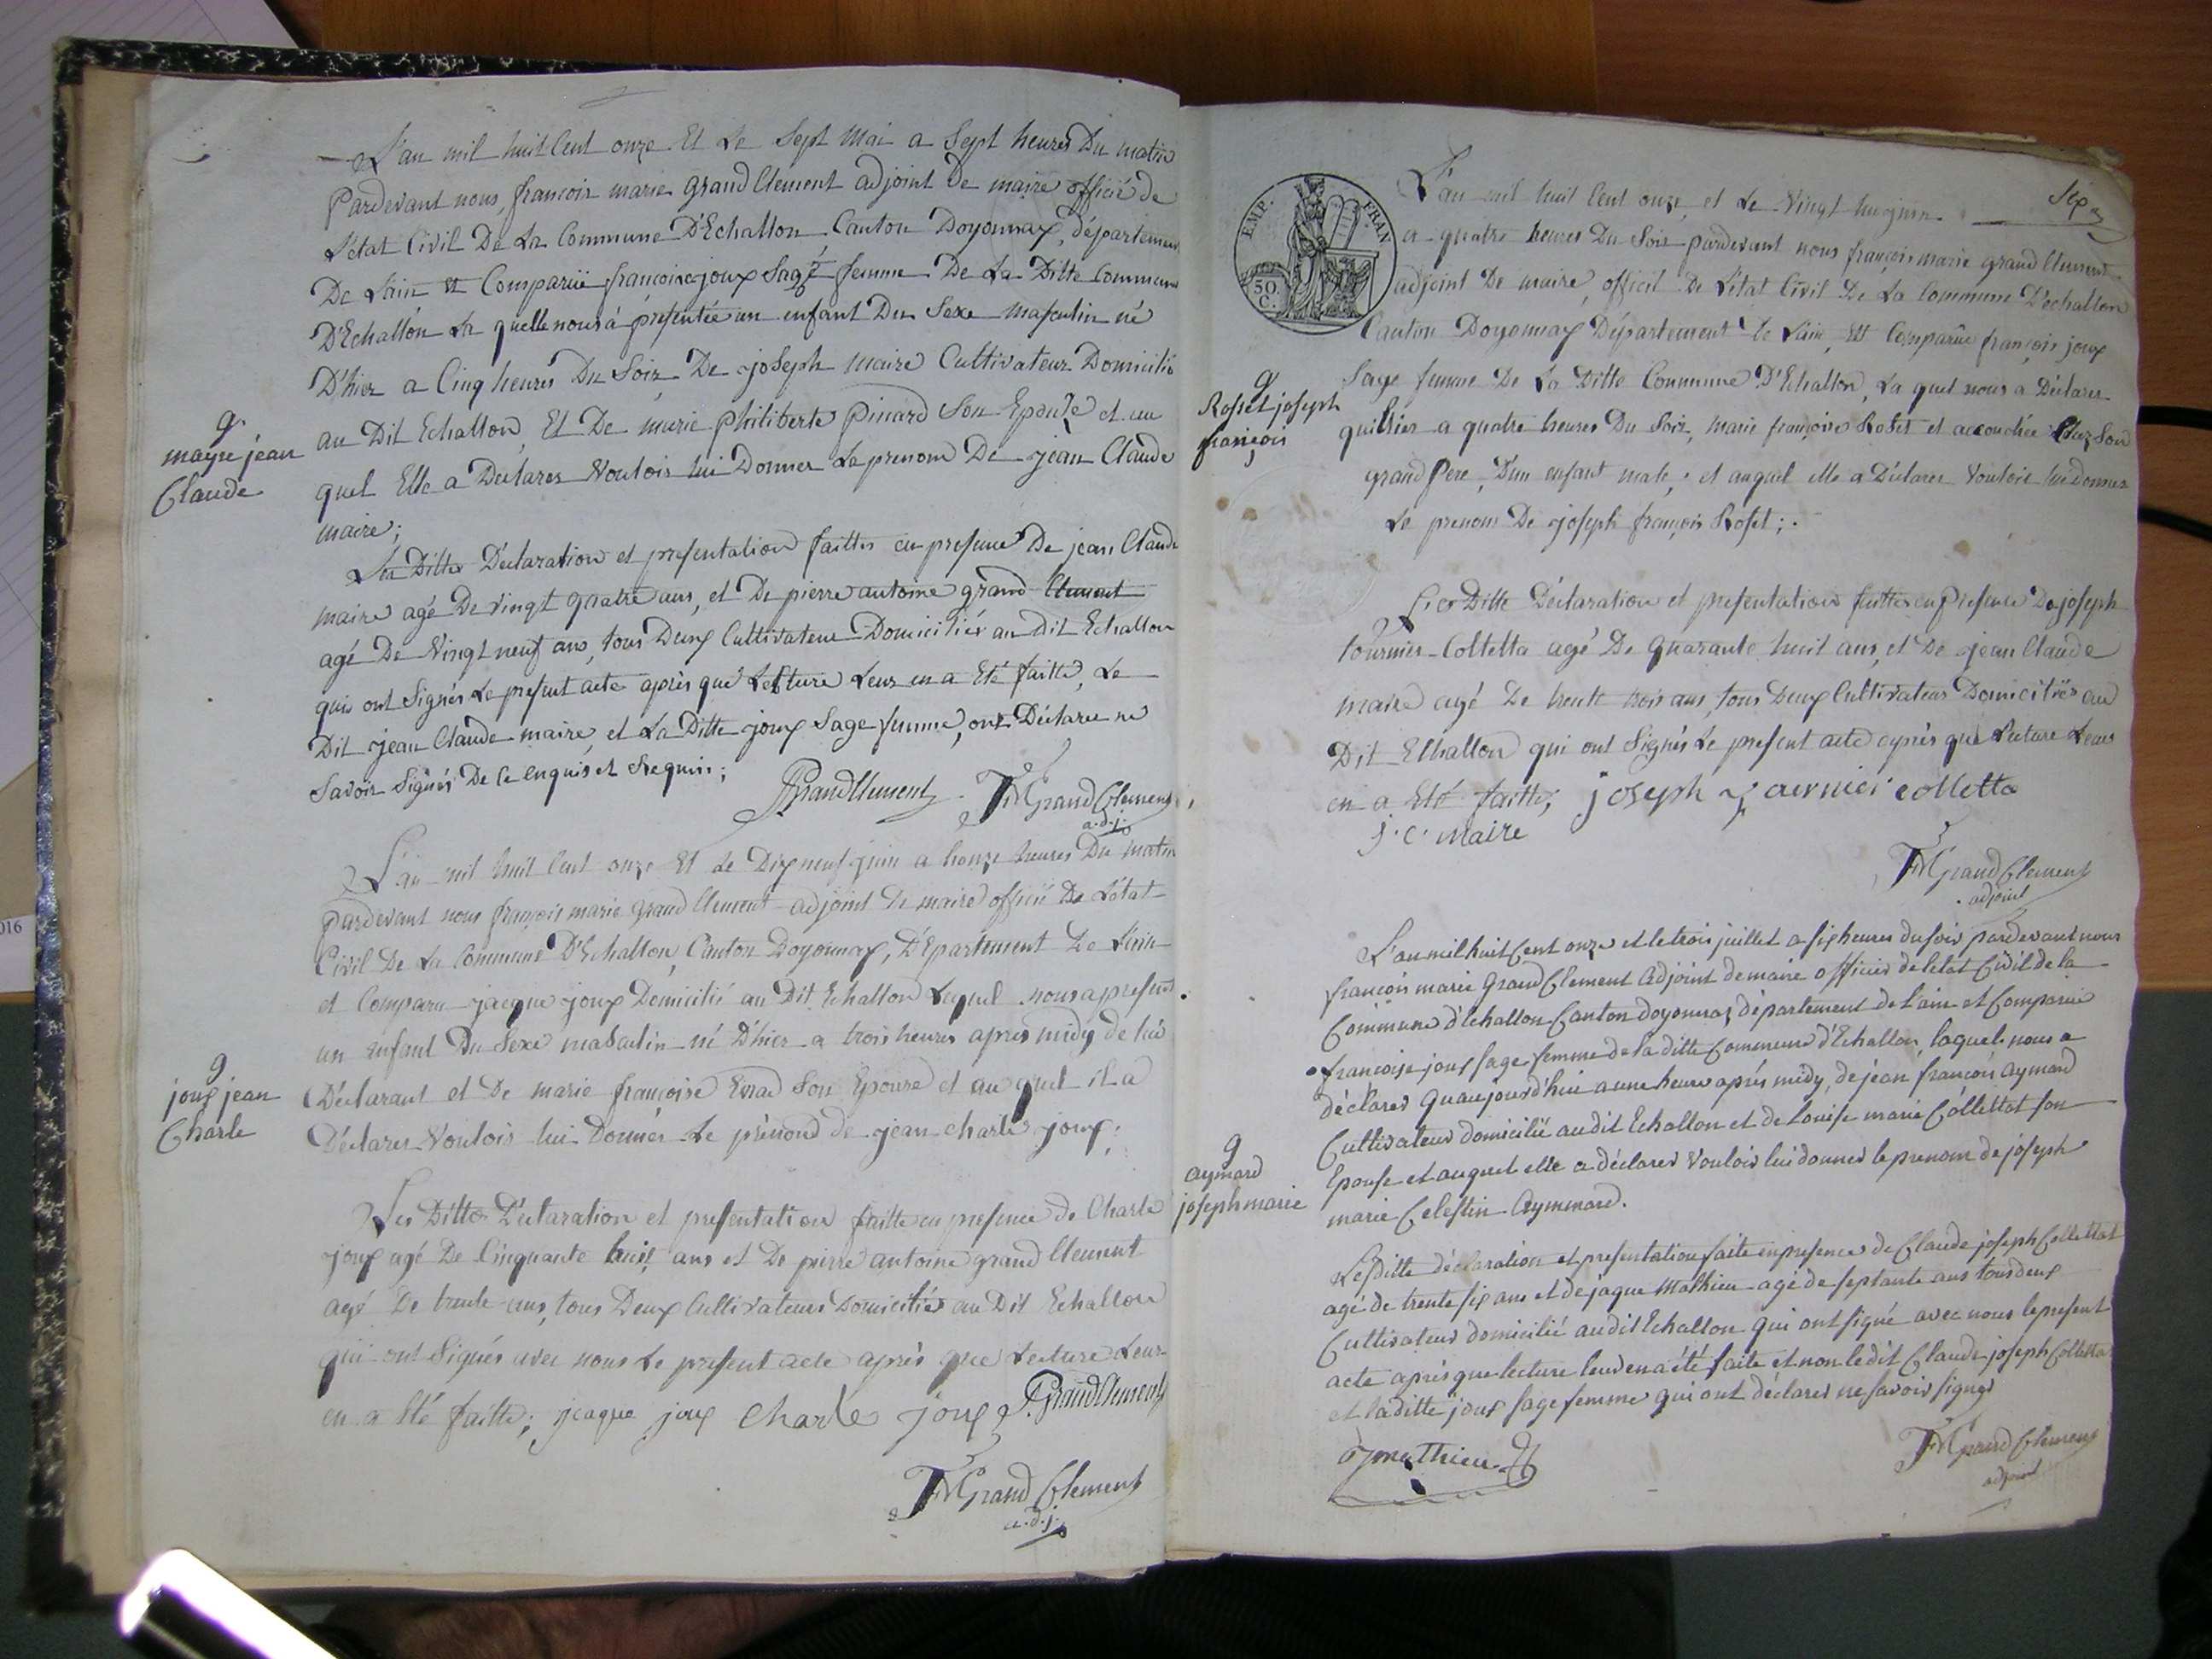 L'an mil huit Cent onze Et Le Sept Mai a Sept heures Du matin
Pardevant nous, francois marie grand Clement adjoint De maire officié de
L'état Civil De La Commune D'Echallon, Canton Doyonnax, département
De Lain Et Comparüe francoise joux Sage femme De La Ditte Commune
D'Echallon La quelle nous á présentée un enfant Du Sexe masculin né
D'hier a Cinq heures Du Soir De joseph maire Cultivateur Domicilié
au Dit Echallon, Et De marie philiberte pinard Son Epouse et au
quel Elle a Déclarer Vouloir lui Donner Le prenom De jean Claude
maire;
g
mayre jean
Claude
Les Dittes Déclaration et presentation faittes en presence De jean Claude
maire agé De vingt quatre ans, et De pierre antoine grand Clement
agé De Vingt neuf ans, tous Deux Cultivateur Domiciliés au Dit Echallon
qui ont Signés Le present acte après que Lecture Leur en a Eté faitte, Le
Dit jean Claude maire, et La Ditte joux Sage femme, ont Déclaree ne
Savoir Signés De Ce enquis et Requis;
PGrandClement FMGrandClement
a.d.j.
L'an mil huit Cent onze Et Le Dix neuf juin a honze heures Du matin
pardevant nous françois marie grand Clement adjoint De maire officié De L'état
Civil De La Commune D'Echallon, Canton Doyonnax, D'Epartement De Lain
et Comparu jacque joux Domicilié au Dit Echallon Lequel nous a present
un enfant Du Séxe masculin né D'hier a trois heures apres midy de lui
Déclarant et De marie françoise Evrad Son Epouse et au quel il a
Déclarer Vouloir lui Donnér Le prénom de jean charle joux;
g
joux jean
Charle
Les Dittes Déclaration et presentation faitte en presence de Charle
joux agé De Cinquante huit ans et De pierre antoine grand Clement
agé De trente ans, tous Deux Cultivateurs Domiciliés au Dit Echallon
qui ont Signés avec nous Le present acte après que Lecture Leur
en a Eté faitte; jcaque joux Charle joux PGrandClement
FMGrand Clement
a.d.j.
Six
EMP. FRAN
50.
C.
L'an mil huit Cent onze, et Le Vingt juin
a quatre heures Du Soir pardevant nous françois marie grand Clement
adjoint De maire, officié De L'état Civil De La Commune D'echallon
Canton Doyonnax Département De Lain, Est Comparüe françois joux
Sage femme De La Ditte Commune D'Echallon, La quel nous a Déclarer
qu'hier a quatre heures Du Soir, marie françoise Roset et accouchée Chez Son
grand Pere, D'un enfant male, et auquel elle a Déclarer Vouloir lui donner
Le prenom De joseph françois Roset;
g
Rosset joseph
françois
Les Ditte Déclaration et presentation faittes en Presence De joseph
tournier Colletta agé De quarante huit ans, et De jean Claude
maire agé De trente trois ans, tous Deux Cultivateurs Domiciliés au
Dit Echallon qui ont Signés Le present acte après que Lecture Leur
en a Eté faitte; joseph tournier colletta
j. c. maire
FMGrand Clement
adjoint
L'an mil huit Cent onze et le trois juillet a six heures du soir pardevant nous
françois marie Grand Clement Adjoint de maire officier de letat Civil de la
Commune d'Echallon Canton doyonnax département de lain et Comparüe
francoise joux sage femme de la ditte Commune d'Echallon, laquele nous a
déclarer quaujourd'hui a une heure après midy, de jean françois aymard
Cultivateur domicilié audit Echallon et de Louise marie Collettat son
Epouse et auquel elle a déclarer vouloir lui donner le prenom de joseph
marie Celestin Aymmard.
g
aymard
joseph marie
Lesditte déclaration et presentation faite en presence de Claude joseph Collettat
agé de trente six ans et de jaque Mathieu agé de septante ans tous deux
Cultivateur domicilié audit Echallon qui ont signé avec nous le present
acte après que lecture leur en a été faite et non ledit Claude joseph Colletta
et la ditte joux sage femme qui ont déclarer ne savoir signer
jmathieu
FMGrand Clement
adjoint